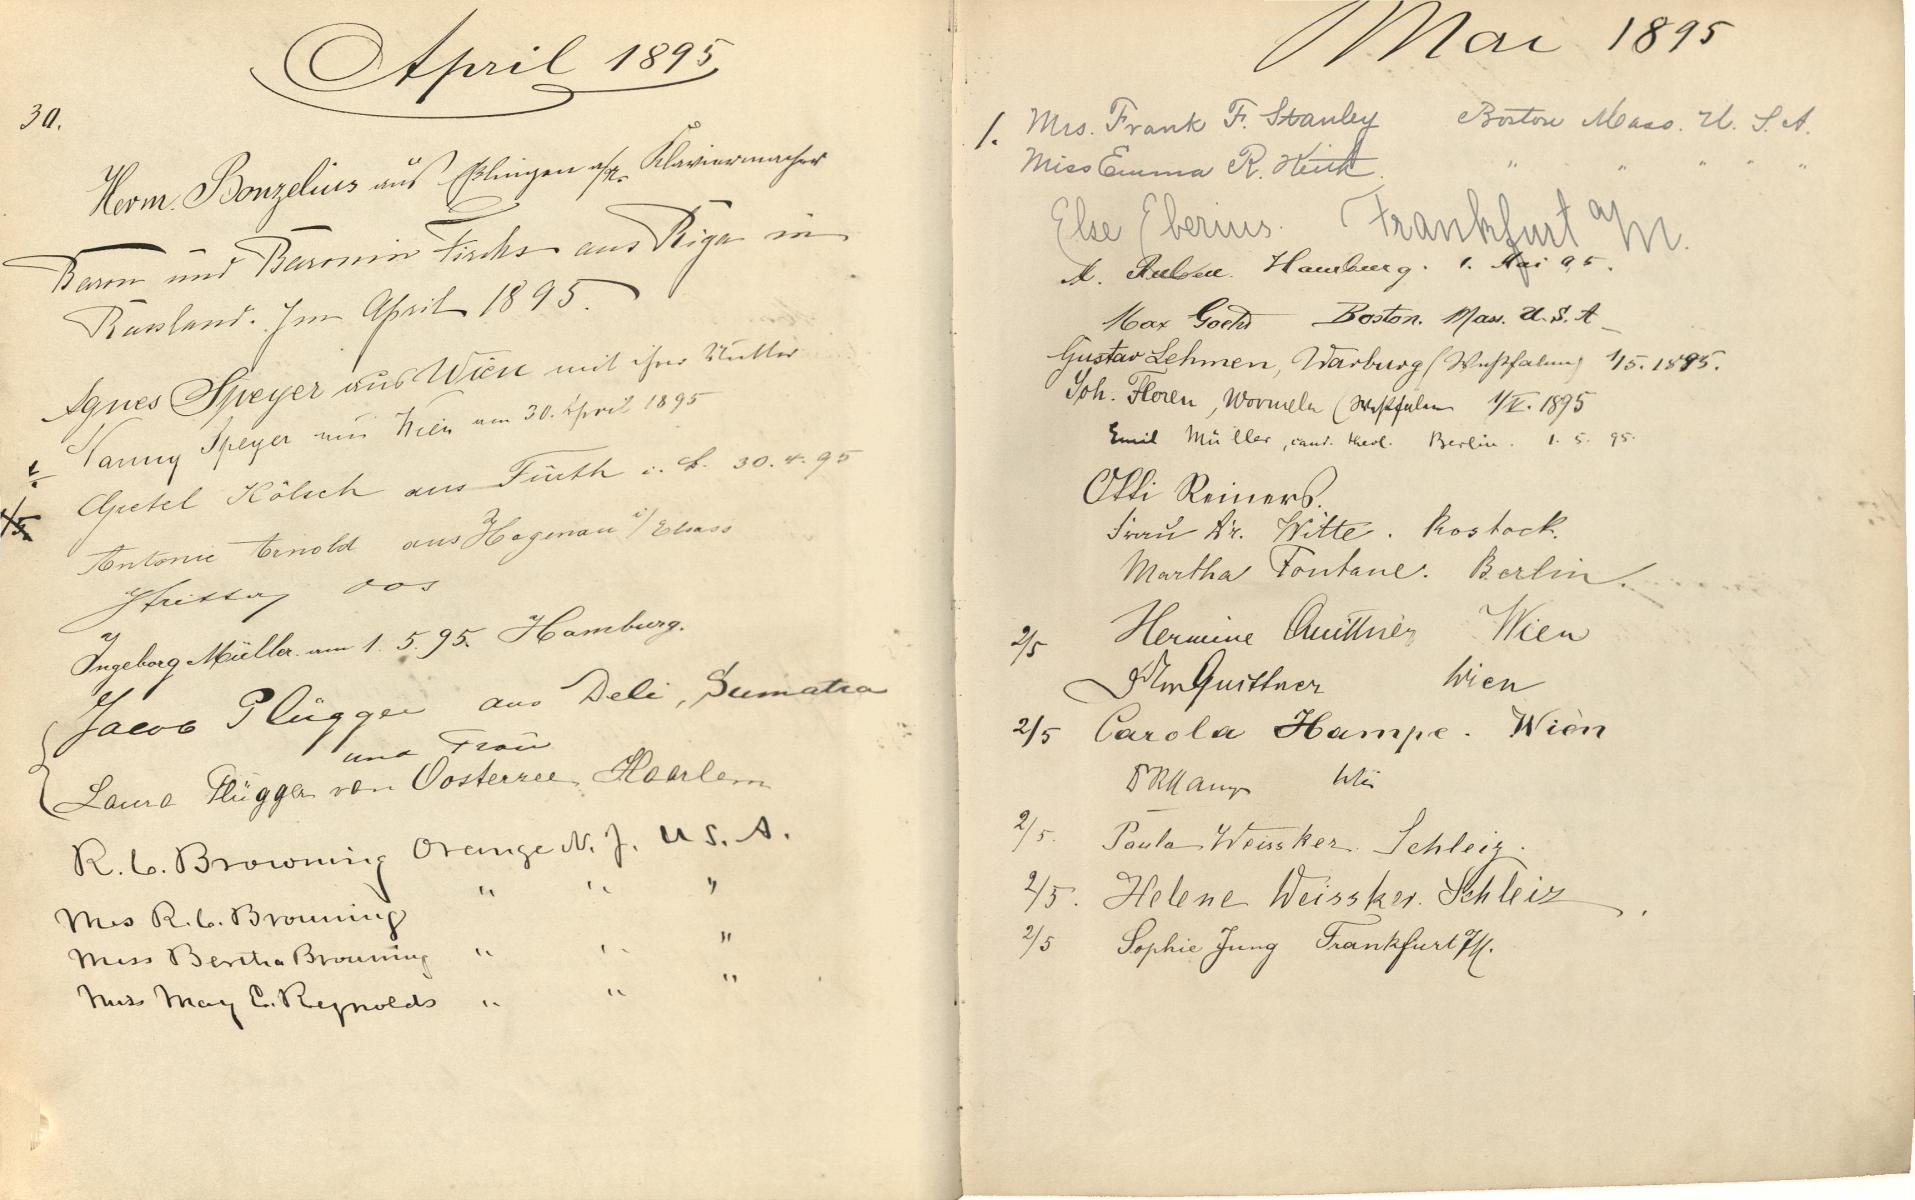 April 1895
30.
Herm. Bonzelius aus Klaviermacher
Baron und Baronin Fircks aus Riga in
Russland. Im April 1895.
Agnes Speyer aus Wien mit ihrer Mutter
Nanny Speyer aus Wien am 30. April 1895
Gretel Kölsch aus Fürth i. 30.4.95
1/5
Antonie Arnold aus Hagenau i/Elsass
Ingeborg Müller am 1.5.95. Hamburg.
Jacob Plügger aus Deli, Sumatra
und Frau
Laura Plügger van Oosterzee Haarlem
R. C. Browning Orange N. J. U S. A.
Mrs R. C. Browning " " "
Miss Bertha Browning " " "
Miss May C. Reynolds " " "
Mai 1895
1. Mrs. Frank F. Stanley Boston Mass. U. S. A.
Miss Emma R. Keith. " " " " "
Else Eberius. Frankfurt a/M.
A. Hamburg. 1. Mai 95.
Max Boston. Mass. U. S. A
Gustav Lehmen, Warburg (Westfalen) 1/5. 1895.
Joh. Floren, Wormeln (Westfalen 1/V. 1895
Emil Müller, cand. theol. Berlin. 1. 5. 95.
Otti Reiners.
Frau Dr. Witte. Rostock.
Martha Fontane. Berlin.
2/5 Hermine Quittner Wien
Quittner Wien
2/5 Carola Hampe. Wien
2/5. Paula Weissker. Schleiz.
2/5. Helene Weissker. Schleiz.
2/5 Sophie Jung Frankfurt a/M.